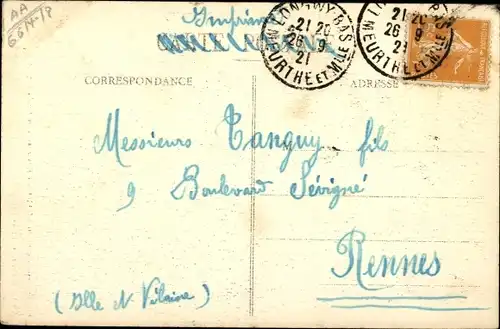 AA
Imprimé
CARTE POSTALE
LONGWY-BAS
21 20
26 9
21
MEURTHE ET Mlle
21 20
26 9
21
MEURTHE ET Mlle
CORRESPONDANCE
ADRESSE
Messieurs Tanguy fils
9 Boulevard Sévigné
Rennes
(Ille et Vilaine)